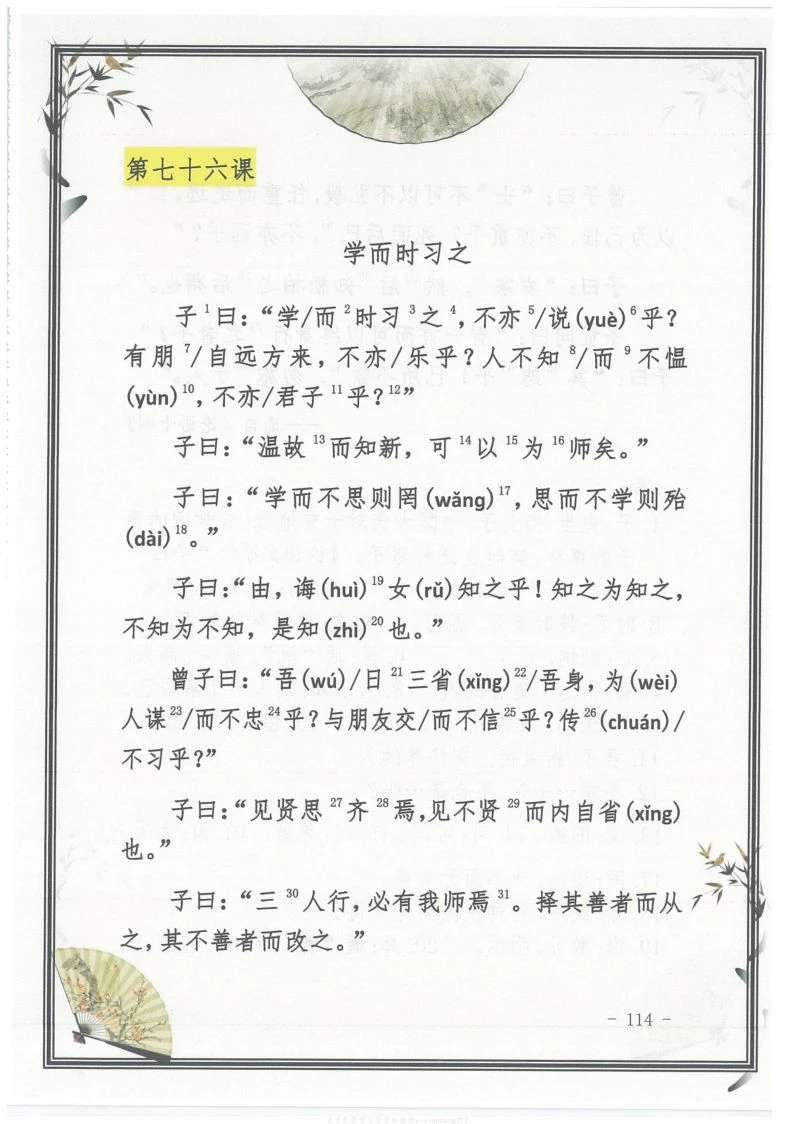 第七十六课
学而时习之
子¹曰：“学/而²时习³之⁴，不亦⁵/说(yuè)⁶乎？
有朋⁷/自远方来，不亦/乐乎？人不知⁸/而⁹不愠
(yùn)¹⁰，不亦/君子¹¹乎？¹²”
子曰：“温故¹³而知新，可¹⁴以¹⁵为¹⁶师矣。”
子曰：“学而不思则罔(wǎng)¹⁷，思而不学则殆
(dài)¹⁸。”
子曰：“由，诲(huì)¹⁹女(rǔ)知之乎！知之为知之，
不知为不知，是知(zhì)²⁰也。”
曾子曰：“吾(wú)/日²¹三省(xǐng)²²/吾身，为(wèi)
人谋²³/而不忠²⁴乎？与朋友交/而不信²⁵乎？传²⁶(chuán)/
不习乎？”
子曰：“见贤思²⁷齐²⁸焉，见不贤²⁹而内自省(xǐng)
也。”
子曰：“三³⁰人行，必有我师焉³¹。择其善者而从
之，其不善者而改之。”
- 114 -